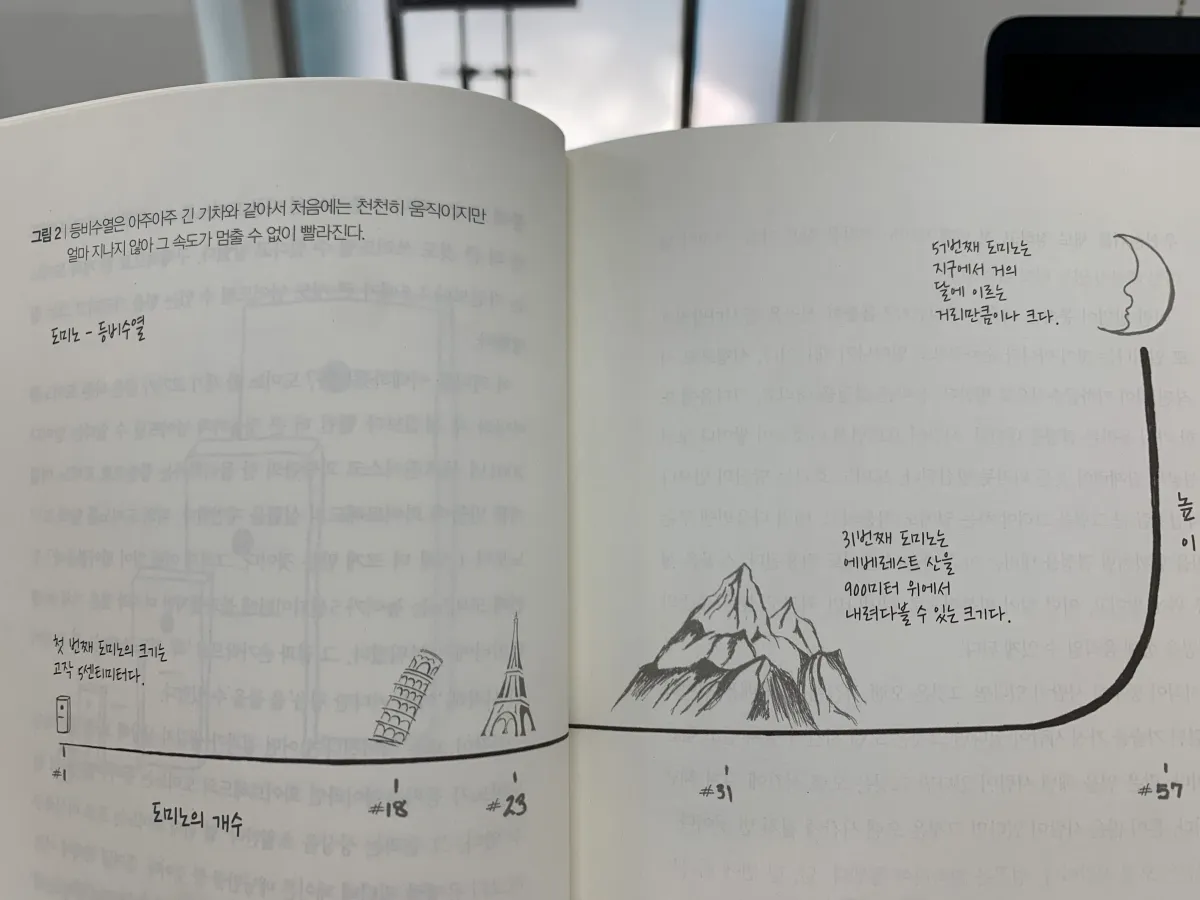 그림 2 | 등비수열은 아주아주 긴 기차와 같아서 처음에는 천천히 움직이지만
얼마 지나지 않아 그 속도가 멈출 수 없이 빨라진다.
도미노 - 등비수열
첫 번째 도미노의 크기는
고작 5센티미터다.
#1
도미노의 개수
#18
#23
57번째 도미노는
지구에서 거의
달에 이르는
거리만큼이나 크다.
31번째 도미노는
에베레스트 산을
900미터 위에서
내려다볼 수 있는 크기다.
높
이
#31
#57